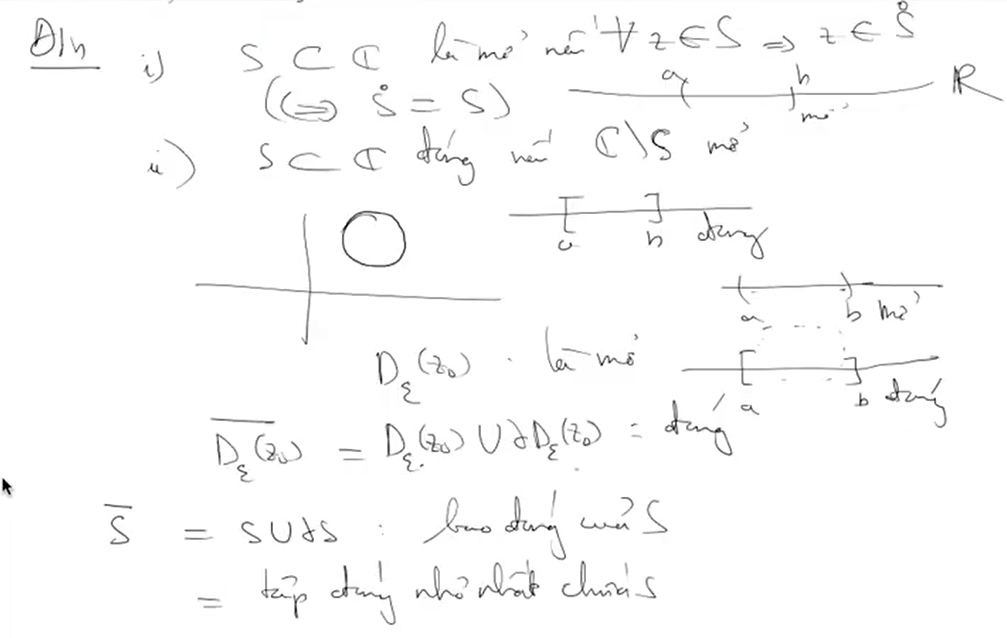 Đ/n i) S ⊂ ℂ là mở nếu ∀ z ∈ S ⇒ z ∈ S̊
(⇔ S̊ = S)
a b ℝ
mở
ii) S ⊂ ℂ đóng nếu ℂ\S mở
a b đóng
a b mở
D_ε(z₀) là mở
a b đóng
\overline{D_ε(z₀)} = D_ε(z₀) ∪ ∂D_ε(z₀) : đóng
S̄ = S ∪ ∂S : bao đóng của S
= tập đóng nhỏ nhất chứa S